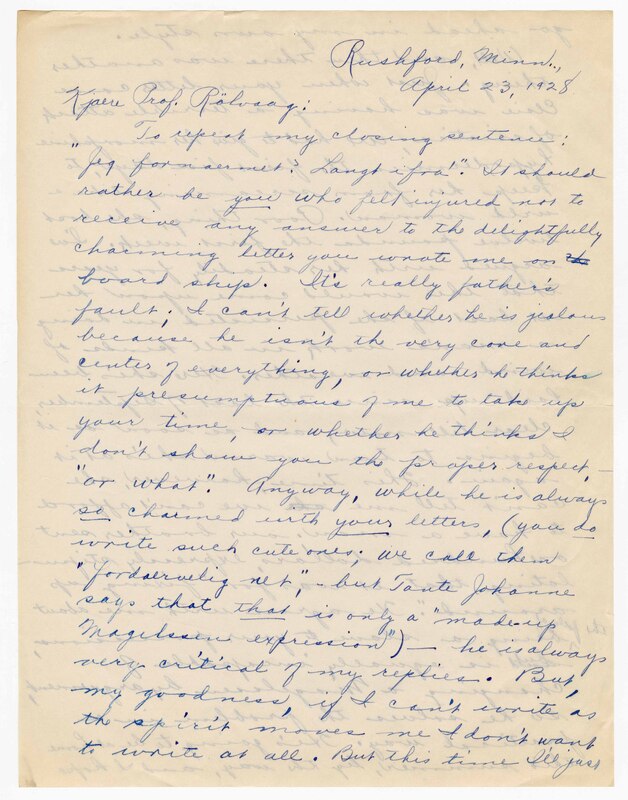 Rushford, Minn.,
April 23, 1928
Kjære Prof. Rölvaag:
To repeat my closing sentence:
"Jeg fornaermet? Langt ifra!". It should
rather be you who felt injured not to
receive any answer to the delightfully
charming letter you wrote me on
board ship. It's really father's
fault; I can't tell whether he is jealous
because he isn't the very core and
center of everything, or whether he thinks
it presumptuous of me to take up
your time, or whether he thinks I
don't show you the proper respect, –
"or what". Anyway, while he is always
so charmed with your letters, (you do
write such cute ones; we call them
"fordaervelig net", – but Tante Johanne
says that that is only a "made-up
Magelssen expression") – he is always
very critical of my replies. But,
my goodness, if I can't write as
the spirit moves me I don't want
to write at all. But this time I'll just